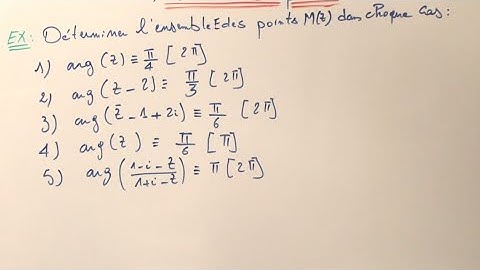 EX: Déterminer l'ensemble E des points M(z) dans chaque cas:
1) arg (z) ≡ π/4 [2π]
2) arg (z - 2) ≡ π/3 [2π]
3) arg (z̄ - 1 + 2i) ≡ π/6 [2π]
4) arg (z) ≡ π/6 [π]
5) arg ((1-i-z)/(1+i-z)) ≡ π [2π]